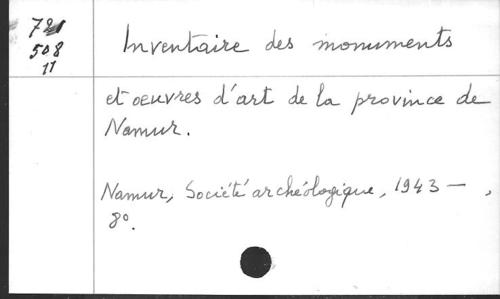 Inventaire des monuments
508
11
et oeuvres d'art de la province de
Namur.
Namur, Société archéologique, 1943 — ,
8°.